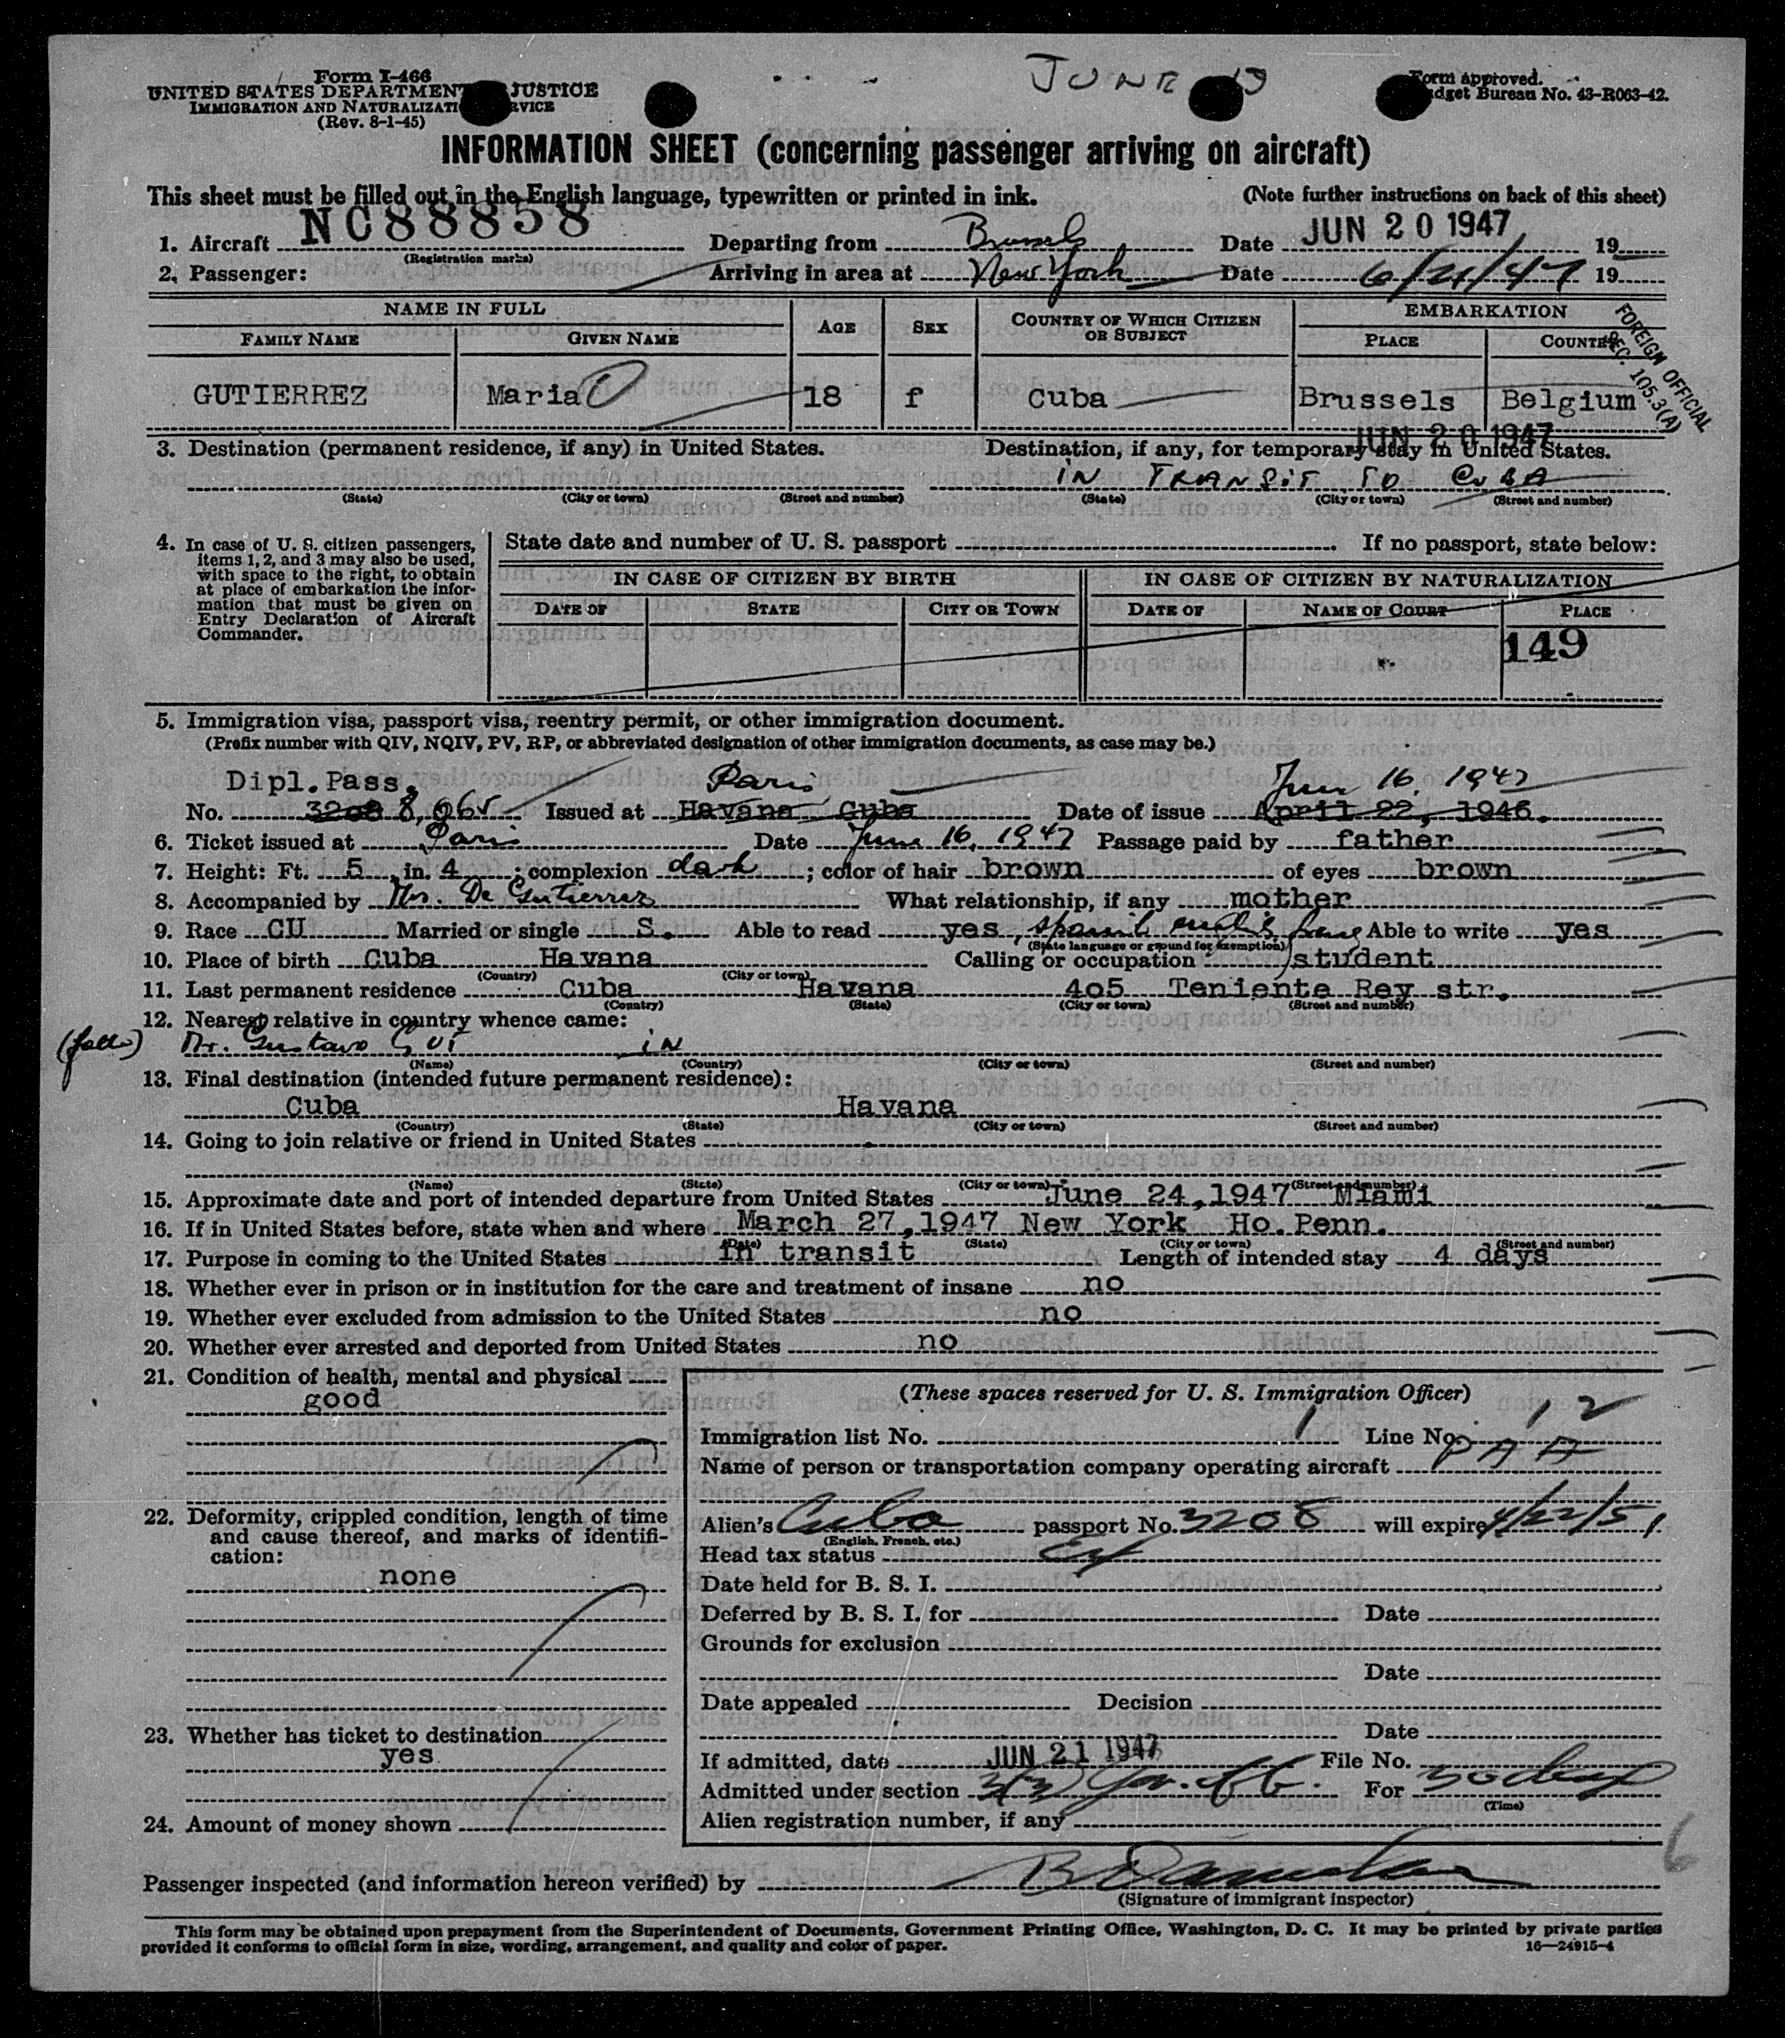 Form I-466
UNITED STATES DEPARTMENT JUSTICE
IMMIGRATION AND NATURALIZATI RVICE
(Rev. 8-1-45)
JUNE
Form approved.
dget Bureau No. 43-R063-42.
INFORMATION SHEET (concerning passenger arriving on aircraft)
This sheet must be filled out in the English language, typewritten or printed in ink. (Note further instructions on back of this sheet)
1. Aircraft NC88858 Departing from Brussels Date JUN 20 1947 19
(Registration marks)
2. Passenger: Arriving in area at New York Date 6/21/47 19
NAME IN FULL AGE SEX COUNTRY OF WHICH CITIZEN OR SUBJECT EMBARKATION
FAMILY NAME GIVEN NAME PLACE COUNTRY
FOREIGN OFFICIAL
SEC. 105.3(A)
GUTIERREZ Maria O 18 f Cuba Brussels Belgium
JUN 20 1947
3. Destination (permanent residence, if any) in United States. Destination, if any, for temporary stay in United States.
IN TRANSIT TO CUBA
(State) (City or town) (Street and number) (State) (City or town) (Street and number)
4. In case of U. S. citizen passengers, items 1, 2, and 3 may also be used, with space to the right, to obtain at place of embarkation the information that must be given on Entry Declaration of Aircraft Commander.
State date and number of U. S. passport . If no passport, state below:
IN CASE OF CITIZEN BY BIRTH IN CASE OF CITIZEN BY NATURALIZATION
DATE OF STATE CITY OR TOWN DATE OF NAME OF COURT PLACE
149
5. Immigration visa, passport visa, reentry permit, or other immigration document.
(Prefix number with QIV, NQIV, PV, RP, or abbreviated designation of other immigration documents, as case may be.)
Dipl. Pass. Paris June 16, 1947
No. 3208 Issued at Havana Cuba Date of issue April 22, 1946.
6. Ticket issued at Paris Date June 16, 1947 Passage paid by father
7. Height: Ft. 5 in. 4 ; complexion dark ; color of hair brown of eyes brown
8. Accompanied by Mrs. De Gutierrez What relationship, if any mother
9. Race CU Married or single S. Able to read yes, Able to write yes
(State language or ground for exemption)
10. Place of birth Cuba Havana Calling or occupation student
(Country) (City or town)
11. Last permanent residence Cuba Havana 405 Teniente Rey str.
(Country) (State) (City or town) (Street and number)
12. Nearest relative in country whence came:
Mr. Gustavo GUT in
(Name) (Country) (City or town) (Street and number)
13. Final destination (intended future permanent residence):
Cuba Havana
(Country) (State) (City or town) (Street and number)
14. Going to join relative or friend in United States
(Name) (State) (City or town) (Street and number)
15. Approximate date and port of intended departure from United States June 24,1947 Miami
16. If in United States before, state when and where March 27,1947 New York Ho. Penn.
(Date) (State) (City or town) (Street and number)
17. Purpose in coming to the United States in transit Length of intended stay 4 days
18. Whether ever in prison or in institution for the care and treatment of insane no
19. Whether ever excluded from admission to the United States no
20. Whether ever arrested and deported from United States no
21. Condition of health, mental and physical
good
22. Deformity, crippled condition, length of time and cause thereof, and marks of identification:
none
23. Whether has ticket to destination
yes
24. Amount of money shown
(These spaces reserved for U. S. Immigration Officer)
Immigration list No. 1 Line No. 12
Name of person or transportation company operating aircraft PAA
Alien's Cuba passport No. 3208 will expire 4/22/51
(English, French, etc.)
Head tax status Ex
Date held for B. S. I.
Deferred by B. S. I. for Date
Grounds for exclusion
Date
Date appealed Decision
Date
If admitted, date JUN 21 1947 File No.
Admitted under section 3(3) For 30 days
(Time)
Alien registration number, if any
6
Passenger inspected (and information hereon verified) by
(Signature of immigrant inspector)
This form may be obtained upon prepayment from the Superintendent of Documents, Government Printing Office, Washington, D. C. It may be printed by private parties
provided it conforms to official form in size, wording, arrangement, and quality and color of paper. 16—24915-4